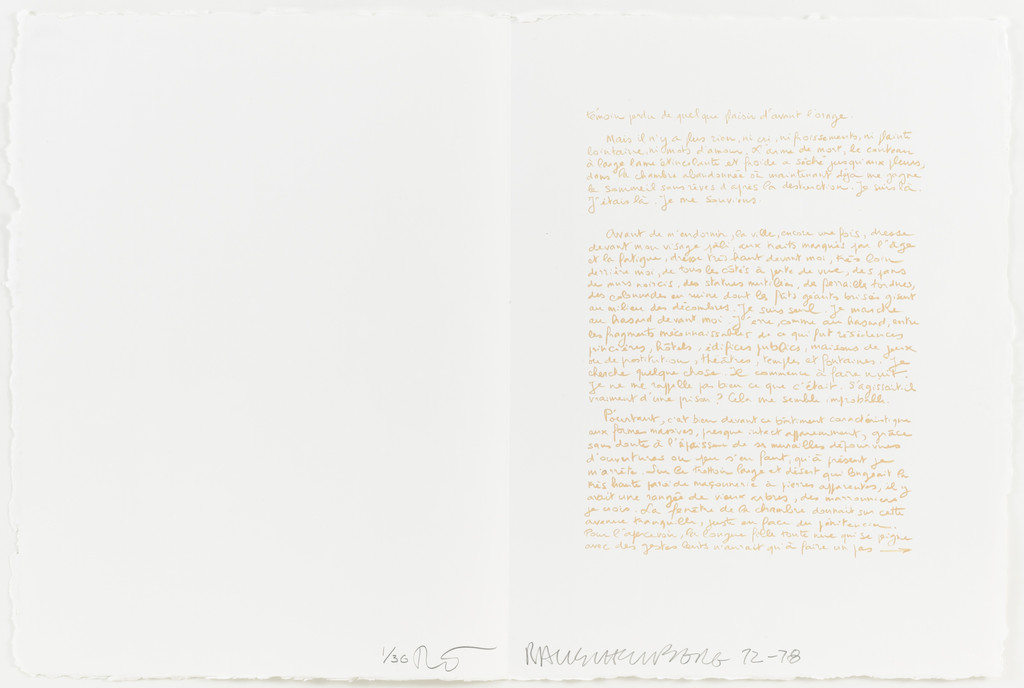 témoin perdu de quelque plaisir d'avant l'orage.
Mais il n'y a plus rien, ni cri, ni froissements, ni plainte
lointaine, ni mots d'amour. L'arme de mort, le couteau
à large lame étincelante et froide a séché jusqu'aux pleurs,
dans la chambre abandonnée où maintenant déjà me gagne
le sommeil sans rêves d'après la destruction. Je suis là.
J'étais là. Je me souviens
Avant de m'endormir, la ville, encore une fois, dresse
devant mon visage pâli, aux traits marqués par l'âge
et la fatigue, dresse très haut devant moi, très loin
derrière moi, de tous les côtés à perte de vue, des pans
de murs noircis, des statues mutilées, de ferraille tordues,
des colonnades en ruine dont les fûts géants brisés gisent
au milieu des décombres. Je suis seul. Je marche
au hasard devant moi. J'erre, comme au hasard, entre
les fragments méconnaissables de ce qui fut résidences
princières, hôtels, édifices publics, maisons de jeux
ou de prostitution, théâtres, temples et fontaines. Je
cherche quelque chose. Il commence à faire nuit.
Je ne me rappelle pas bien ce que c'était. S'agissait-il
vraiment d'une prison ? Cela me semble improbable.
Pourtant, c'est bien devant ce bâtiment caractéristique
aux formes massives, presque intact apparemment, grâce
sans doute à l'épaisseur de ses murailles dépourvues
d'ouvertures ou peu s'en faut, qu'à présent je
m'arrête. Sur le trottoir large et désert qui longeait la
très haute paroi de maçonnerie à pierres apparentes, il y
avait une rangée de vieux arbres, des marronniers
je crois. La fenêtre de la chambre donnait sur cette
avenue tranquille, juste en face du pénitencier.
Pour l'apercevoir, la longue fille toute nue qui se peigne
avec des gestes lents n'aurait qu'à faire un pas →
1/30 RÓ RAUSCHENBERG 72-78